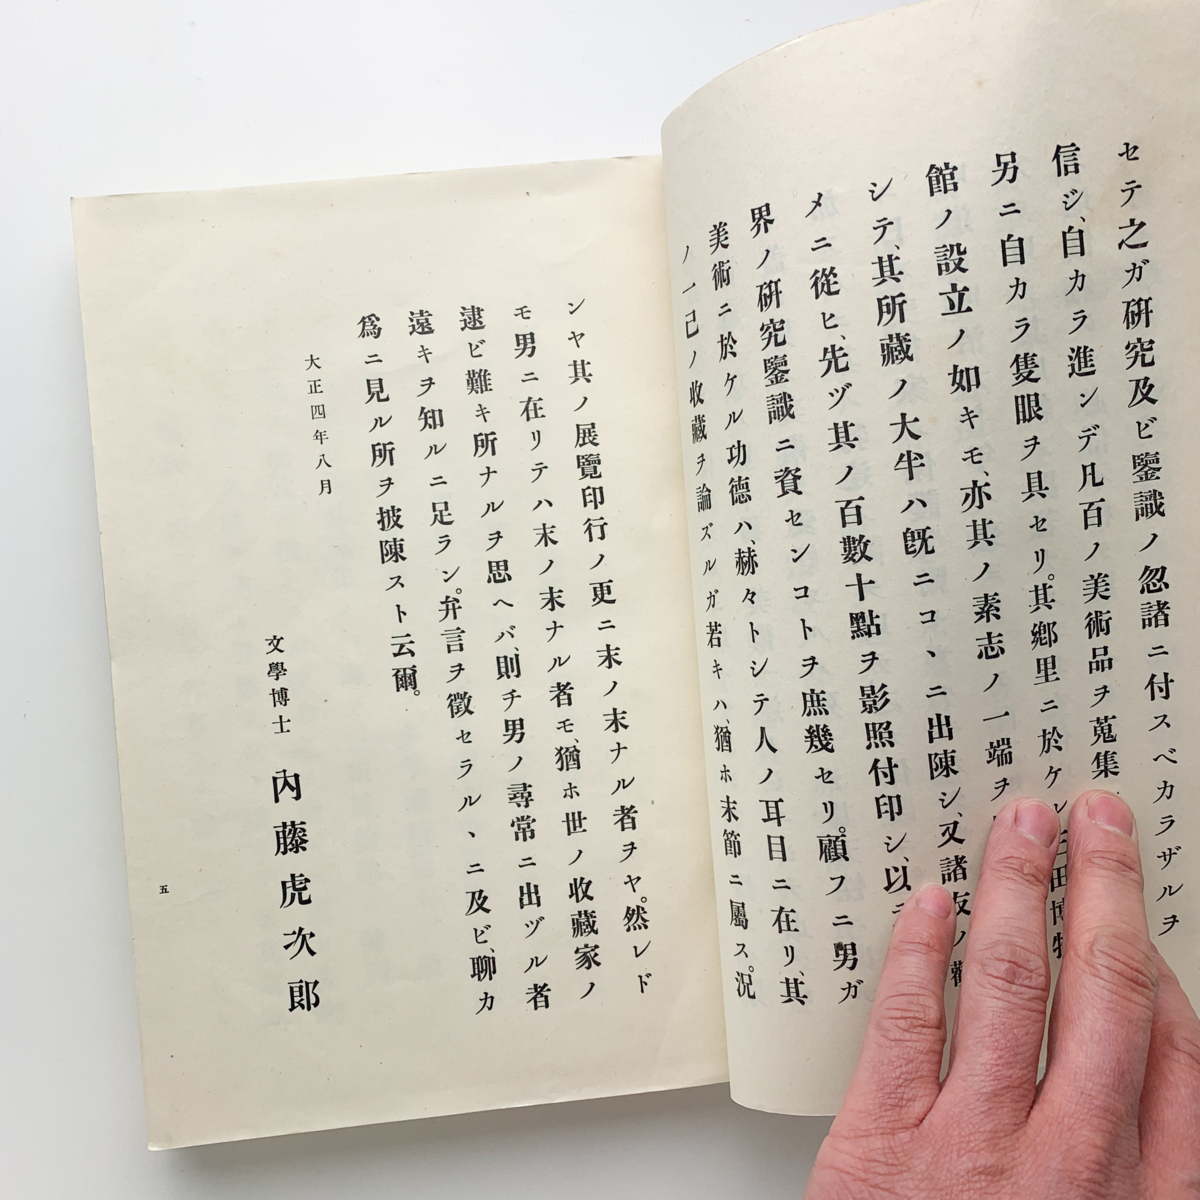 セテ之ガ硏究及ビ鑒識ノ忽諸ニ付スベカラザルヲ
信ジ、自カラ進ンデ凡百ノ美術品ヲ蒐集
另ニ自カラ隻眼ヲ具セリ。其鄕里ニ於ケル三田博物
館ノ設立ノ如キモ、亦其ノ素志ノ一端ヲ
シテ、其所藏ノ大半ハ旣ニコヽニ出陳シ、又諸友ノ勸
メニ從ヒ、先ヅ其ノ百數十點ヲ影照付印シ、以テ
界ノ硏究鑒識ニ資センコトヲ庶幾セリ。顧フニ男ガ
美術ニ於ケル功德ハ、赫々トシテ人ノ耳目ニ在リ、其
ノ一己ノ收藏ヲ論ズルガ若キハ、猶ホ末節ニ屬ス。況
ンヤ其ノ展覽印行ノ更ニ末ノ末ナル者ヲヤ。然レド
モ男ニ在リテハ末ノ末ナル者モ、猶ホ世ノ收藏家ノ
逮ビ難キ所ナルヲ思ヘバ、則チ男ノ尋常ニ出ヅル者
遠キヲ知ルニ足ラン。弁言ヲ徵セラルヽニ及ビ、聊カ
爲ニ見ル所ヲ披陳スト云爾。
大正四年八月
文學博士 內藤虎次郎
五